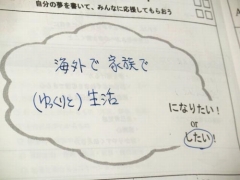 自分の夢を書いて、みんなに応援してもらおう
海外で 家族で
(ゆっくりと) 生活
になりたい!
or
したい!